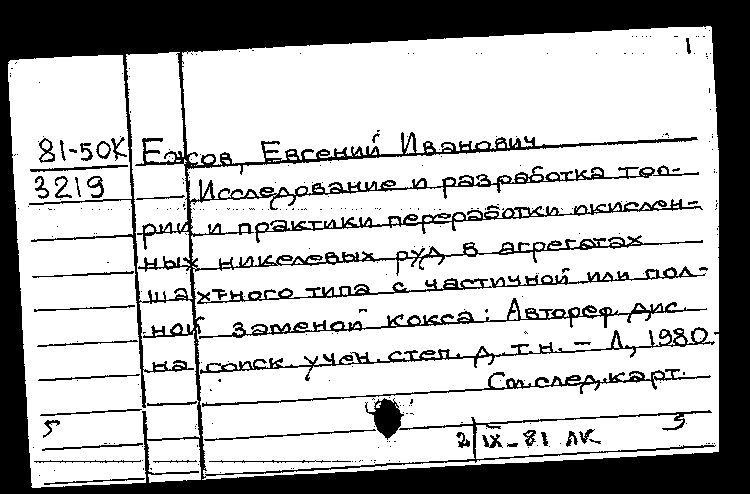 1
81-50К Ежов, Евгений Иванович
3219 Исследование и разработка тео-
рии и практики переработки окислен-
ных никелевых руд в агрегатах
шахтного типа с частичной или пол-
ной заменой кокса: Автореф. дис.
на соиск. учен. степ. д. т. н. – Л., 1980.-
См. след. карт.
5 9
2/IX-81 ЛК